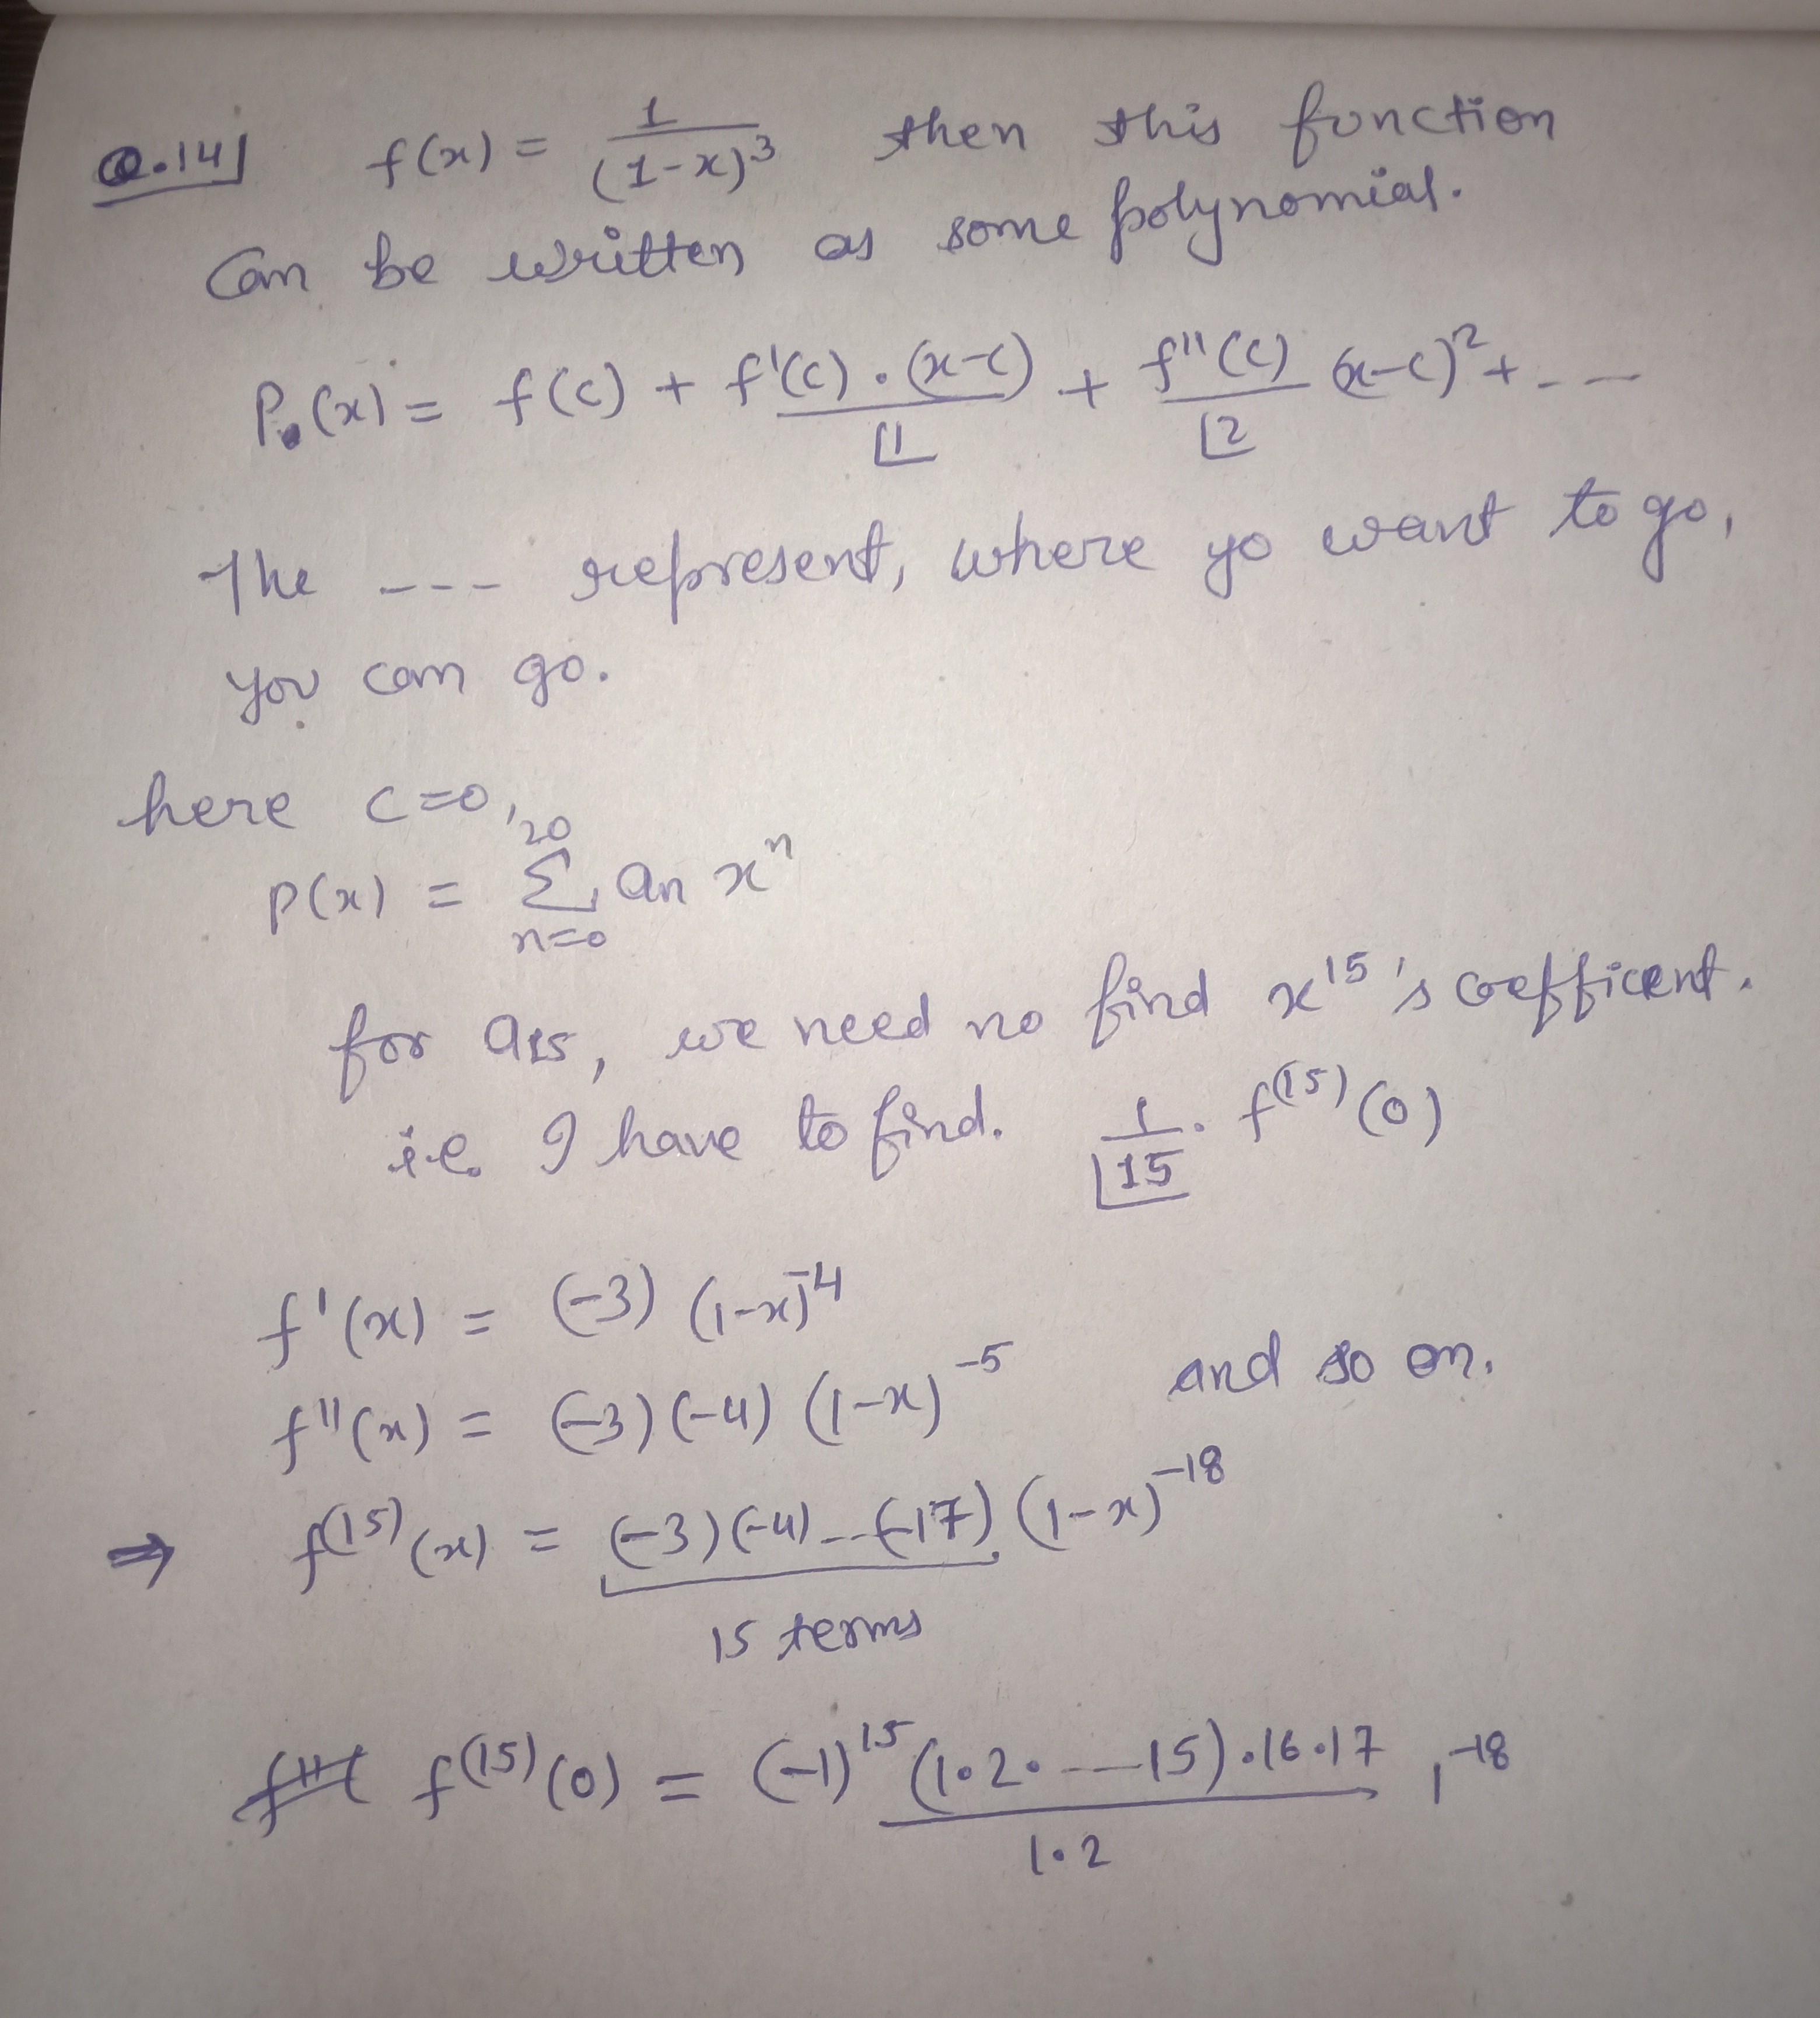 Q.14] f(x) = 1/(1-x)³ then this function
can be written as some polynomial.
P(x) = f(c) + f'(c).(x-c)/⌊1 + f''(c)/⌊2 (x-c)² + - - -
The --- represent, where yo want to go,
you can go.
here c=0,
P(x) = Σ_{n=0}^{20} an xⁿ
for a15, we need no find x¹⁵'s coefficent.
i.e. I have to find. 1/⌊15 . f⁽¹⁵⁾(0)
f'(x) = (-3) (1-x)⁻⁴
f''(x) = (-3)(-4) (1-x)⁻⁵ and so on.
⇒ f⁽¹⁵⁾(x) = (-3)(-4)---(-17) (1-x)⁻¹⁸
15 terms
f⁽¹⁵⁾(0) = (-1)¹⁵ (1.2. --- 15).16.17/1.2 , 1⁻¹⁸